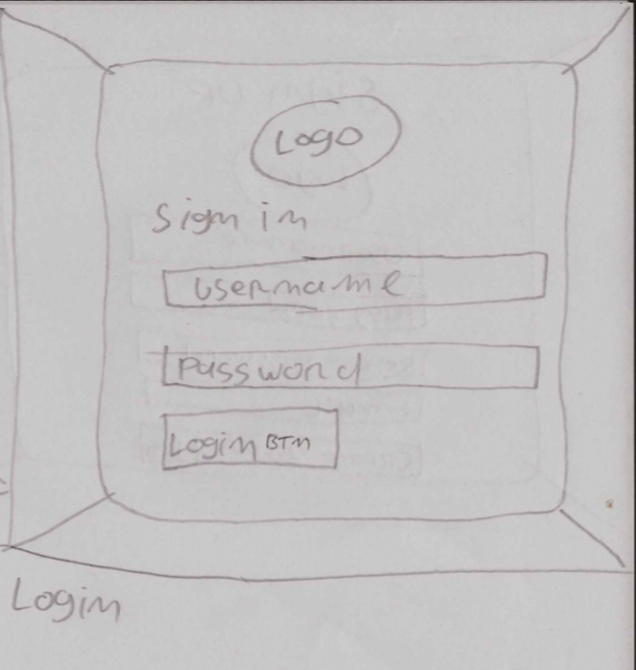 Logo
Sign in
Username
Password
Login BTN
Login